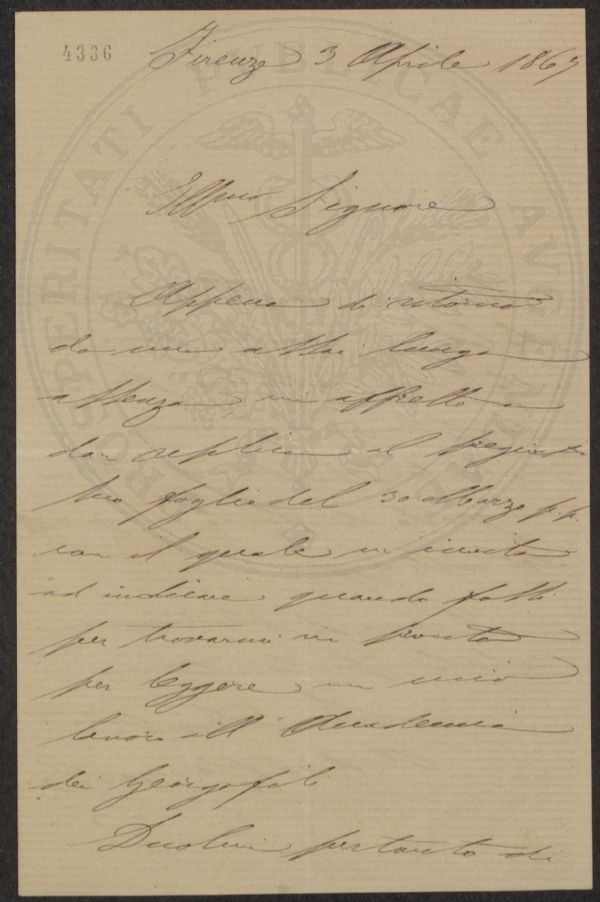 4336
Firenze 3 Aprile 1867
Illmo Signore
Appena di ritorno
da una assai lunga
assenza, mi affretto a
dar replica al pregiatis
suo foglio del 30 Marzo p.p.
con il quale m'invita
ad indicare quando fossi
per trovarmi in pronto
per leggere un mio
lavoro all'Accademia
dei Georgofili
Duolmi pertanto di
PROSPERITATI PUBLICAE AUGENDAE